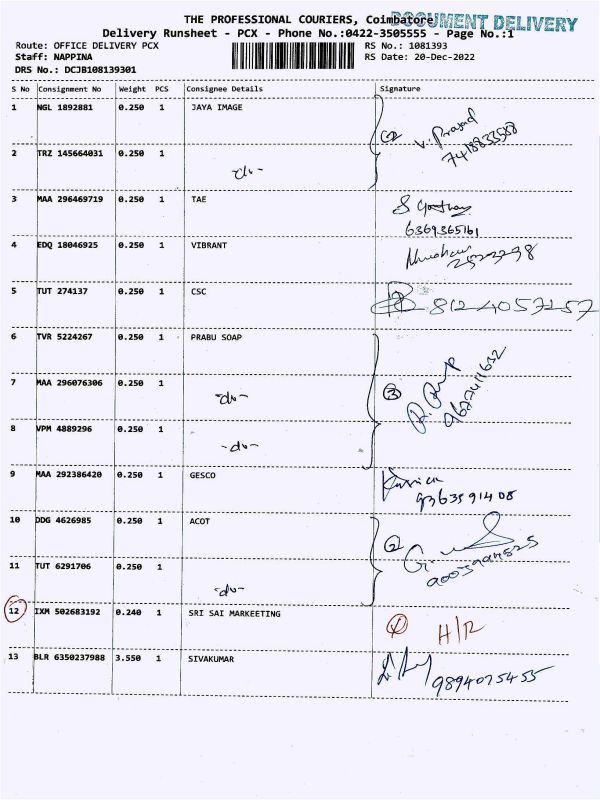 THE PROFESSIONAL COURIERS, Coimbatore
DOCUMENT DELIVERY
Delivery Runsheet - PCX - Phone No.:0422-3505555 - Page No.:1
Route: OFFICE DELIVERY PCX RS No.: 1081393
Staff: NAPPINA RS Date: 20-Dec-2022
DRS No.: DCJB108139301
S No Consignment No Weight PCS Consignee Details Signature
1 NGL 1892881 0.250 1 JAYA IMAGE
V. Prasad
7418833588
2 TRZ 145664031 0.250 1 -do-
3 MAA 296469719 0.250 1 TAE
6369365161
4 EDQ 18046925 0.250 1 VIBRANT
5 TUT 274137 0.250 1 CSC 8124057157
6 TVR 5224267 0.250 1 PRABU SOAP
7 MAA 296076306 0.250 1 -do- 3
8 VPM 4889296 0.250 1 -do-
9 MAA 292386420 0.250 1 GESCO
9363591408
10 DDG 4626985 0.250 1 ACOT 2
11 TUT 6291706 0.250 1 -do-
12 IXM 502683192 0.240 1 SRI SAI MARKEETING H/R
13 BLR 6350237988 3.550 1 SIVAKUMAR
9894025455